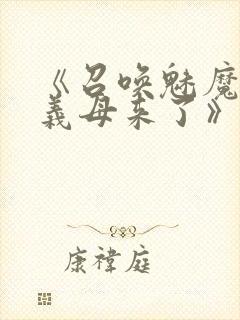 《召唤魅魔
義母来了》
康禕庭